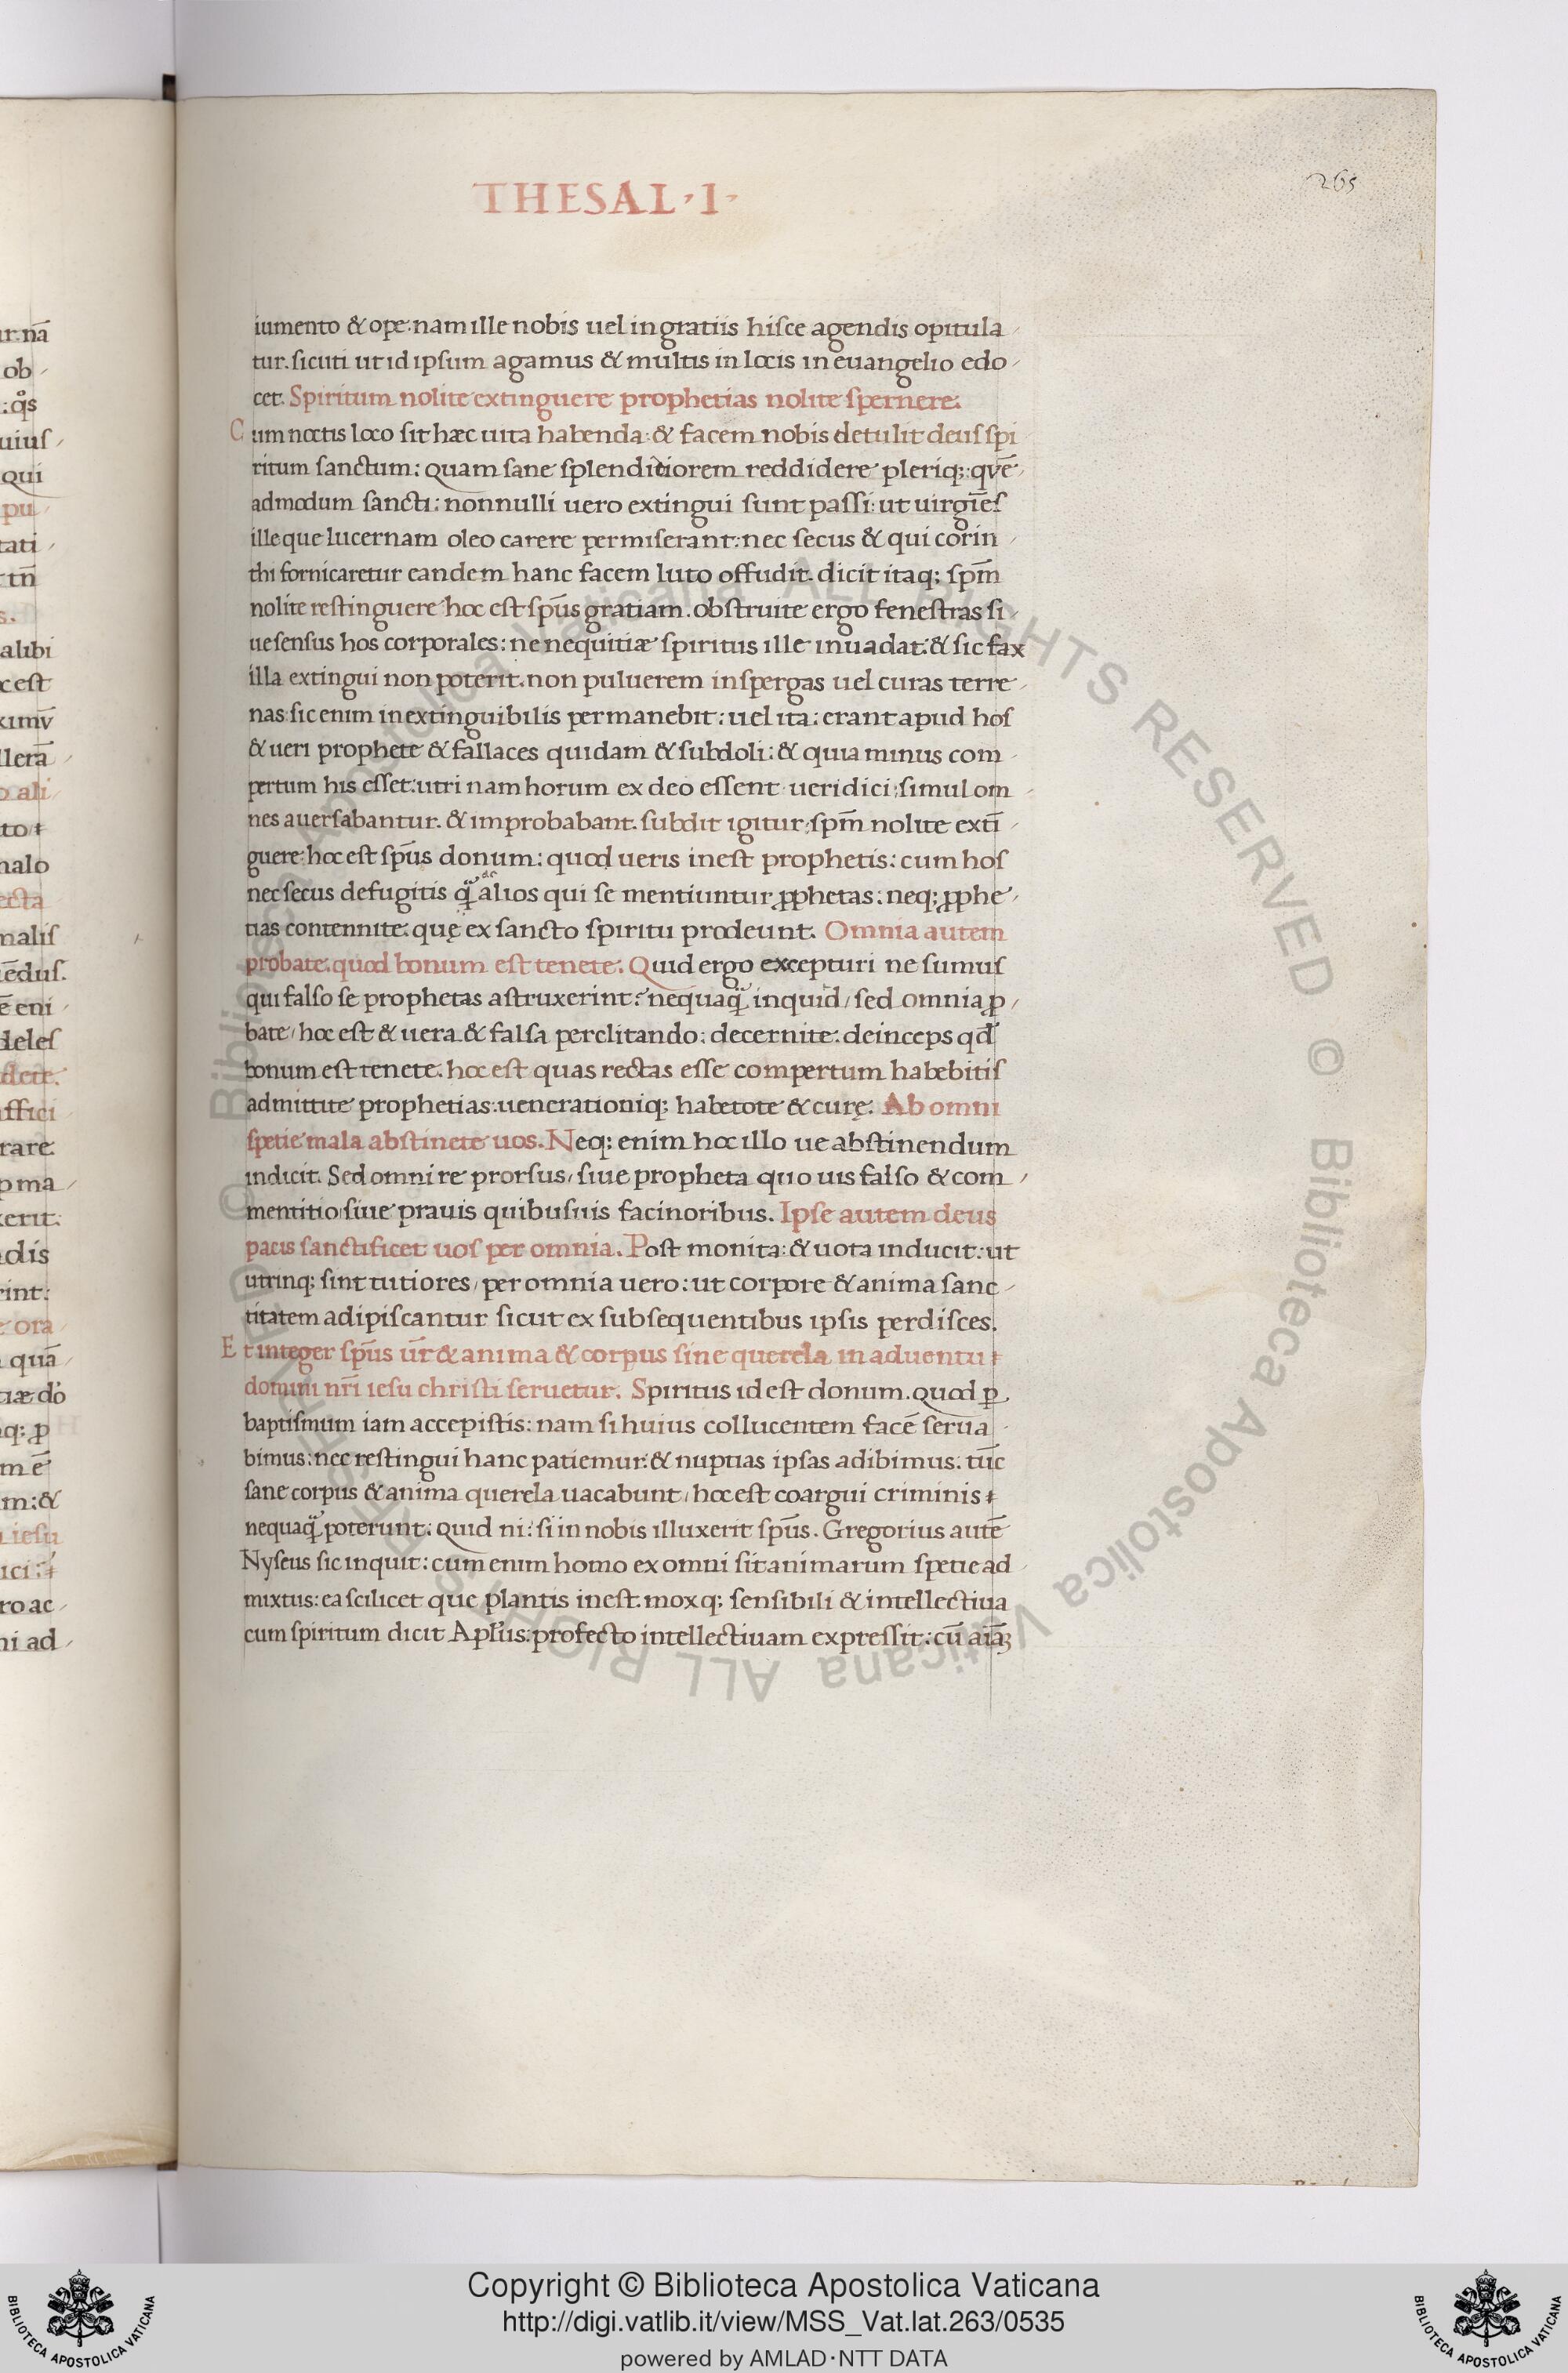 THESAL · I ·
265
iumento & ope: nam ille nobis uel in gratiis hisce agendis opitula
tur. sicuti ut id ipsum agamus & multis in locis in euangelio edo
cet. Spiritum nolite extinguere prophetias nolite spernere.
Cum noctis loco sit hæc uita habenda: & facem nobis detulit deus spi
ritum sanctum: quam sane splenditiorem reddidere pleriq; quē
admodum sancti: nonnulli uero extingui sunt passi: ut uirgīes
ille que lucernam oleo carere permiserant: nec secus & qui corin
thi fornicaretur eandem hanc facem luto offudit. dicit itaq; sp̄m
nolite restinguere hoc est sp̄us gratiam. obstruite ergo fenestras si
ue sensus hos corporales: ne nequitiæ spiritus ille inuadat: & sic fax
illa extingui non poterit. non puluerem inspergas uel curas terre
nas: sic enim inextinguibilis permanebit: uel ita: erant apud hos
& ueri prophete & fallaces quidam & subdoli: & quia minus com
pertum his esset: utri nam horum ex deo essent ueridici: simul om
nes auersabantur. & improbabant. subdit igitur: sp̄m nolite extī
guere: hoc est sp̄us donum: quod ueris inest prophetis: cum hos
nec secus defugitis q̄ alios qui se mentiuntur ꝓphetas: neq; ꝓphe
tias contennite: quę ex sancto spiritu prodeunt. Omnia autem
probate. quod bonum est tenete. Quid ergo excepturi ne sumus
qui falso se prophetas astruxerint? nequaq̄ inquid / sed omnia ꝓ
bate / hoc est & uera & falsa perclitando: decernite: deinceps qđ
bonum est tenete. hoc est quas rectas esse compertum habebitis
admittite prophetias: uenerationiq; habetote & curę. Ab omni
spetie mala abstinete uos. Neq; enim hoc illo ue abstinendum
indicit. Sed omni re prorsus / siue propheta quo uis falso & com
mentitio / siue prauis quibusuis facinoribus. Ipse autem deus
pacis sanctificet uos per omnia. Post monita: & uota inducit: ut
utrinq; sint tutiores / per omnia uero: ut corpore & anima sanc
titatem adipiscantur sicut ex subsequentibus ipsis perdisces.
Et integer sp̄us ur̄ & anima & corpus sine querela in aduentu
domini nr̄i iesu christi seruetur. Spiritus id est donum. quod ꝑ
baptismum iam accepistis: nam si huius collucentem facē serua
bimus: nec restingui hanc patiemur: & nuptias ipsas adibimus. tūc
sane corpus & anima querela uacabunt / hoc est coargui criminis
nequaq̄ poterunt: quid ni: si in nobis illuxerit sp̄us. Gregorius autē
Nyseus sic inquit: cum enim homo ex omni sit animarum spetie ad
mixtus: ea scilicet que plantis inest. moxq; sensibili & intellectiua
cum spiritum dicit Apl̄us: profecto intellectiuam expressit: cū aīaꝫ
© Biblioteca Apostolica Vaticana ALL RIGHTS RESERVED © Biblioteca Apostolica Vaticana ALL RIGHTS RESERVED
Copyright © Biblioteca Apostolica Vaticana
http://digi.vatlib.it/view/MSS_Vat.lat.263/0535
powered by AMLAD·NTT DATA
BIBLIOTECA APOSTOLICA VATICANA
BIBLIOTECA APOSTOLICA VATICANA